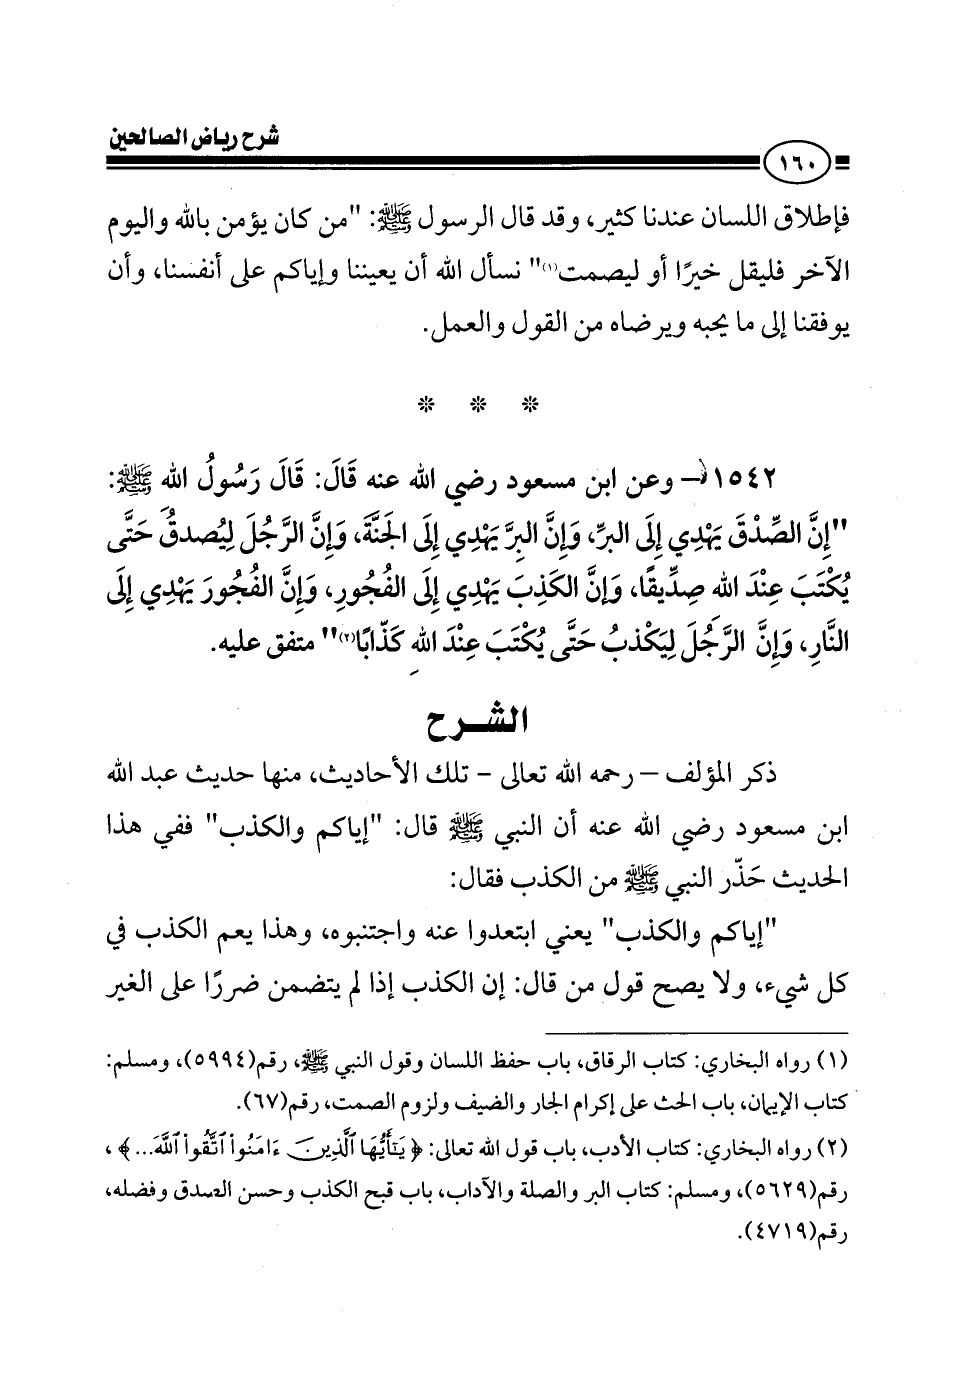 شرح رياض الصالحين
١٦٠
فإطلاق اللسان عندنا كثير، وقد قال الرسول ﷺ: "من كان يؤمن بالله واليوم
الآخر فليقل خيرًا أو ليصمت(١)" نسأل الله أن يعيننا وإياكم على أنفسنا، وأن
يوفقنا إلى ما يحبه ويرضاه من القول والعمل.
* * *
١٥٤٢ - وعن ابن مسعود رضي الله عنه قَالَ: قَالَ رَسُولُ الله ﷺ:
"إِنَّ الصِّدْقَ يَهْدِي إِلَى البرِّ، وَإِنَّ البرَّ يَهْدِي إِلَى الجَنَّةَ، وَإِنَّ الرَّجُلَ لِيُصدقُ حَتَّى
يُكْتَبَ عِنْدَ الله صِدِّيقًا، وَإِنَّ الكَذِبَ يَهْدِي إِلَى الفُجُورِ، وَإِنَّ الفُجُورَ يَهْدِي إِلَى
النَّارِ، وَإِنَّ الرَّجُلَ لِيَكْذبُ حَتَّى يُكْتَبَ عِنْدَ اللهِ كَذَّابًا(٢)" متفق عليه.
الشــرح
ذكر المؤلف – رحمه الله تعالى – تلك الأحاديث، منها حديث عبد الله
ابن مسعود رضي الله عنه أن النبي ﷺ قال: "إياكم والكذب" ففي هذا
الحديث حَذّر النبي ﷺ من الكذب فقال:
"إياكم والكذب" يعني ابتعدوا عنه واجتنبوه، وهذا يعم الكذب في
كل شيء، ولا يصح قول من قال: إن الكذب إذا لم يتضمن ضررًا على الغير
(١) رواه البخاري: كتاب الرقاق، باب حفظ اللسان وقول النبي ﷺ، رقم(٥٩٩٤)، ومسلم:
كتاب الإيمان، باب الحث على إكرام الجار والضيف ولزوم الصمت، رقم(٦٧).
(٢) رواه البخاري: كتاب الأدب، باب قول الله تعالى: ﴿يَٰٓأَيُّهَا ٱلَّذِينَ ءَامَنُواْ ٱتَّقُواْ ٱللَّهَ...﴾،
رقم(٥٦٢٩)، ومسلم: كتاب البر والصلة والآداب، باب قبح الكذب وحسن الصدق وفضله،
رقم(٤٧١٩).